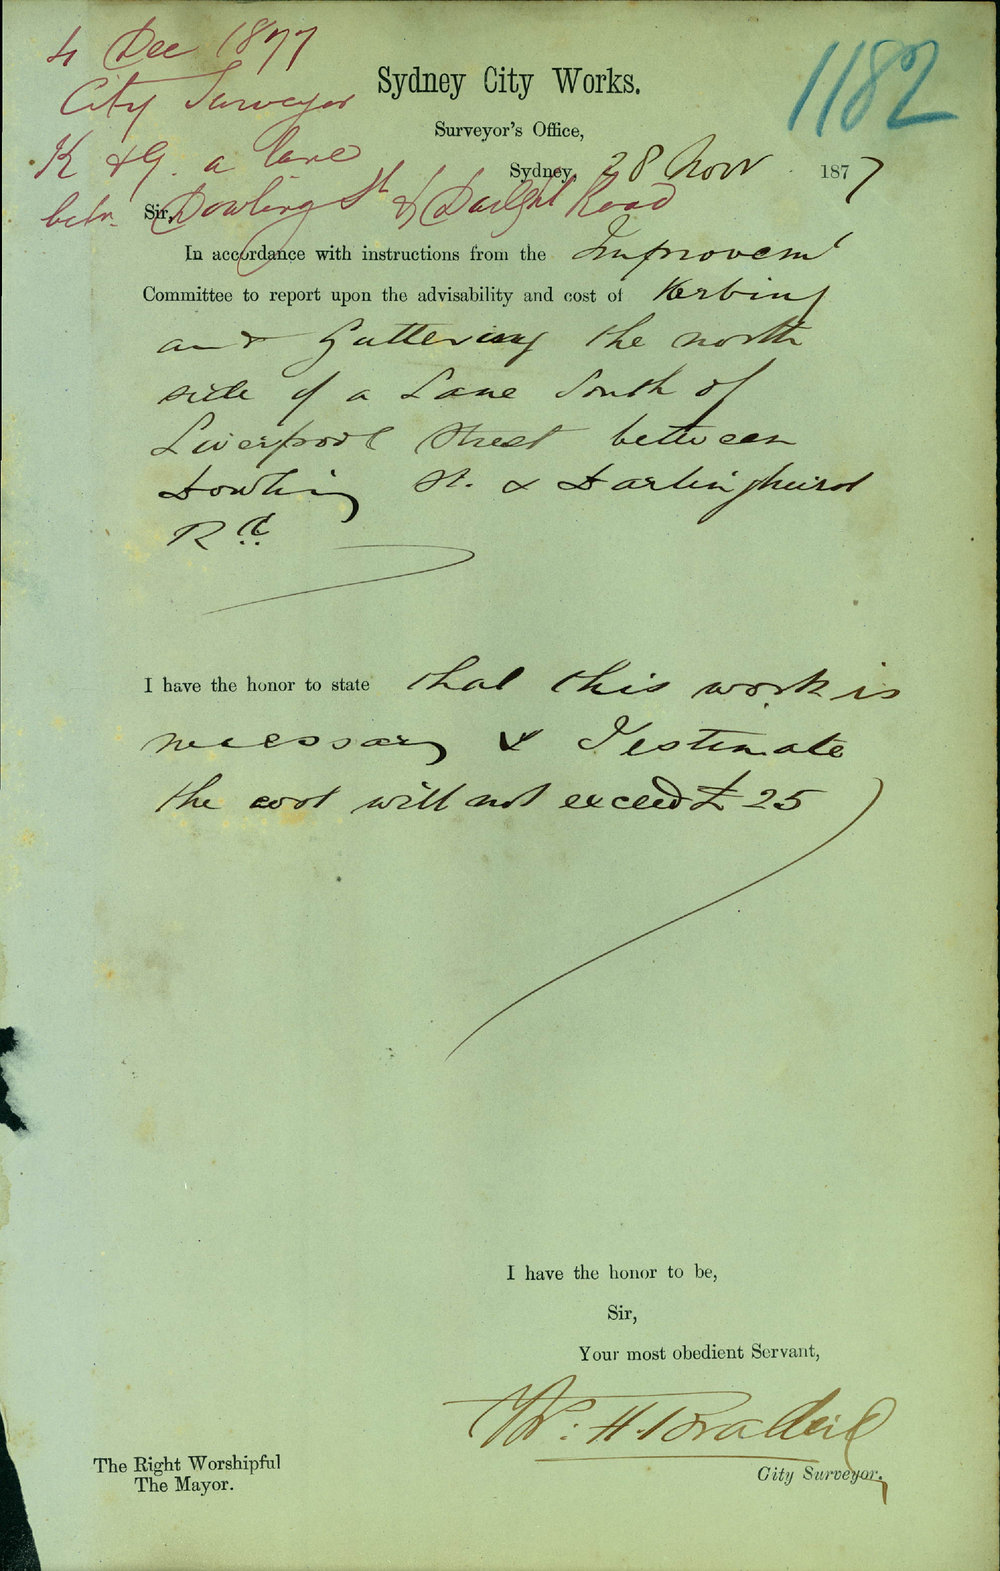 4 Dec 1877
City Surveyor
K & G. a lane
betn. Dowling St & Darlght Road
1182
Sydney City Works.
Surveyor's Office,
Sydney, 28 Novr 1877
Sir,
In accordance with instructions from the Improvemt
Committee to report upon the advisability and cost of Kerbing
and Guttering the north
side of a Lane South of
Liverpool Street between
Dowling St. & Darlinghurst
Rd
I have the honor to state that this work is
necessary & I estimate
the cost will not exceed £25
I have the honor to be,
Sir,
Your most obedient Servant,
City Surveyor.
The Right Worshipful
The Mayor.